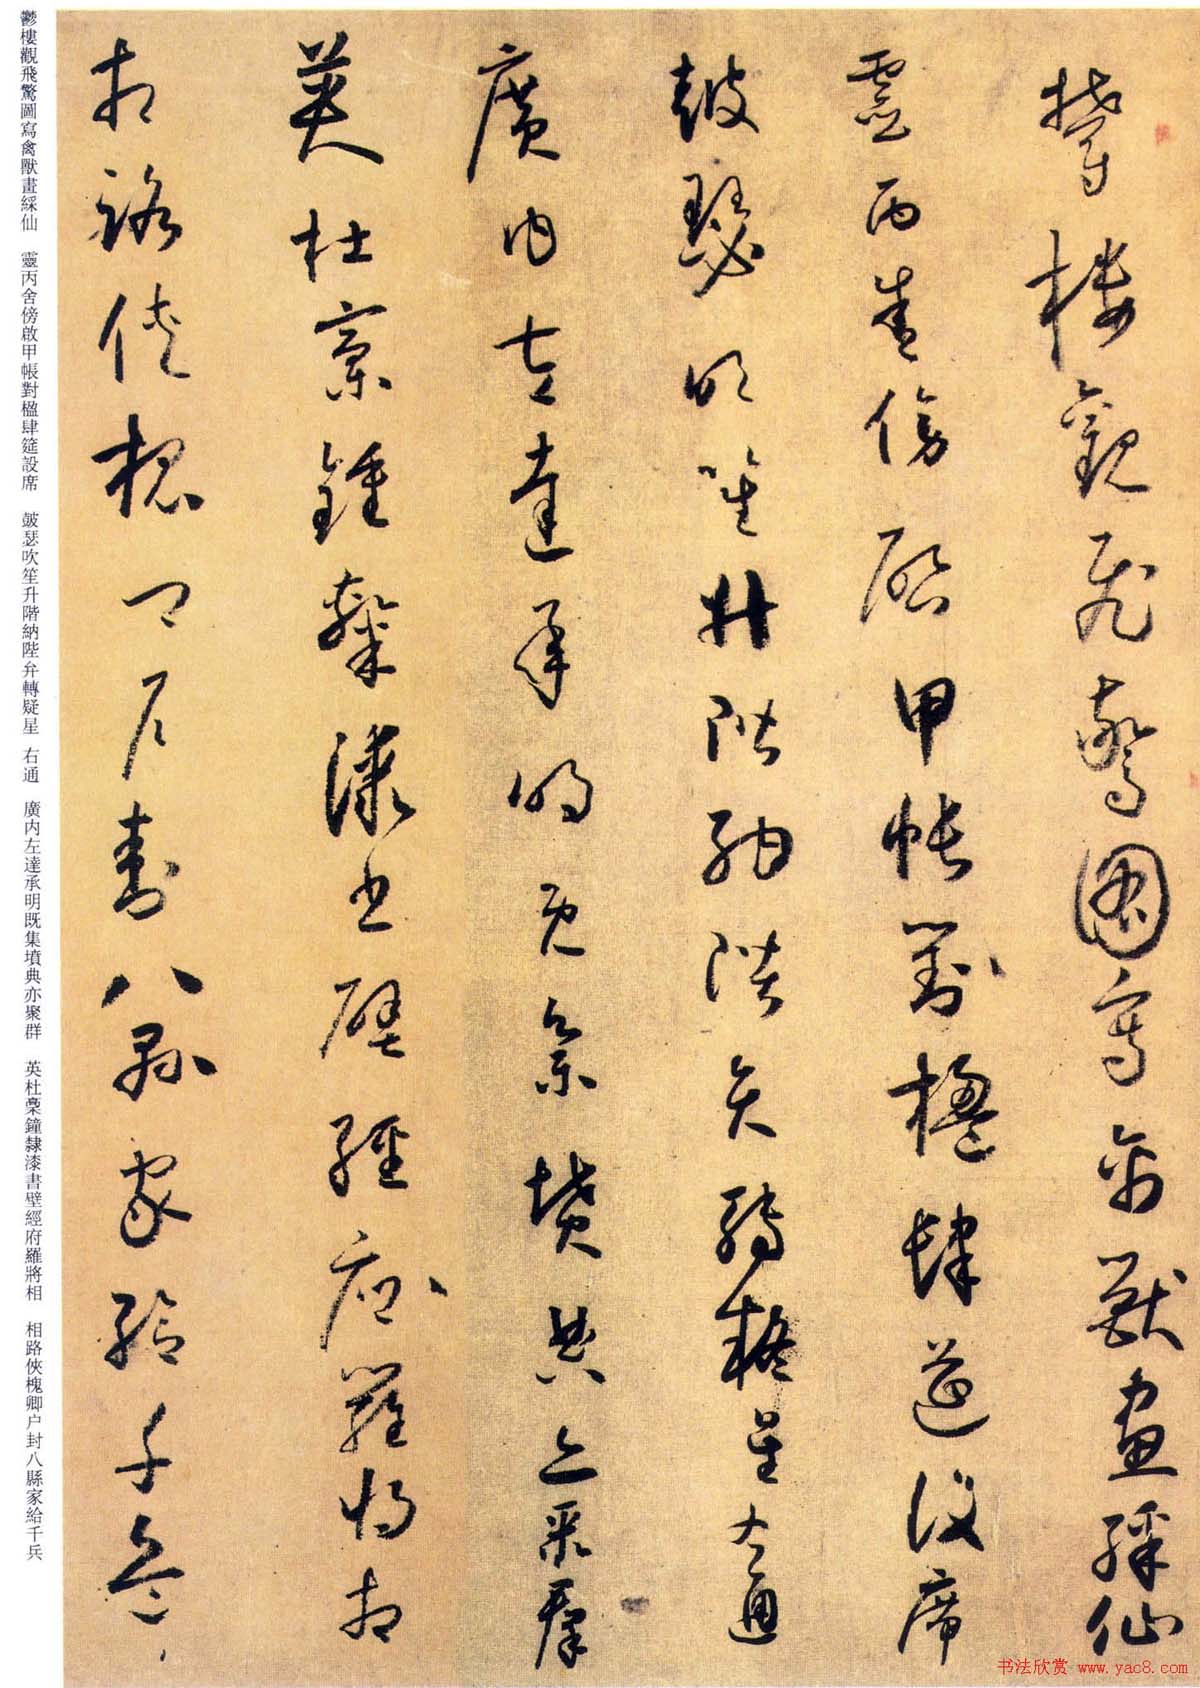 鬱樓觀飛驚圖寫禽獸畫綵仙
靈丙舍傍啟甲帳對楹肆筵設席
皷瑟吹笙升階納陛弁轉疑星右通
廣内左達承明既集墳典亦聚群
英杜稾鍾隸漆書壁經府羅將相
相路俠槐卿户封八縣家給千兵
鬱樓觀飛驚圖寫禽獸畫綵仙 靈丙舍傍啟甲帳對楹肆筵設席 皷瑟吹笙升階納陛弁轉疑星 右通 廣内左達承明既集墳典亦聚群 英杜稾鐘隸漆書壁經府羅將相 相路俠槐卿户封八縣家給千兵
书法欣赏 www.yac8.com